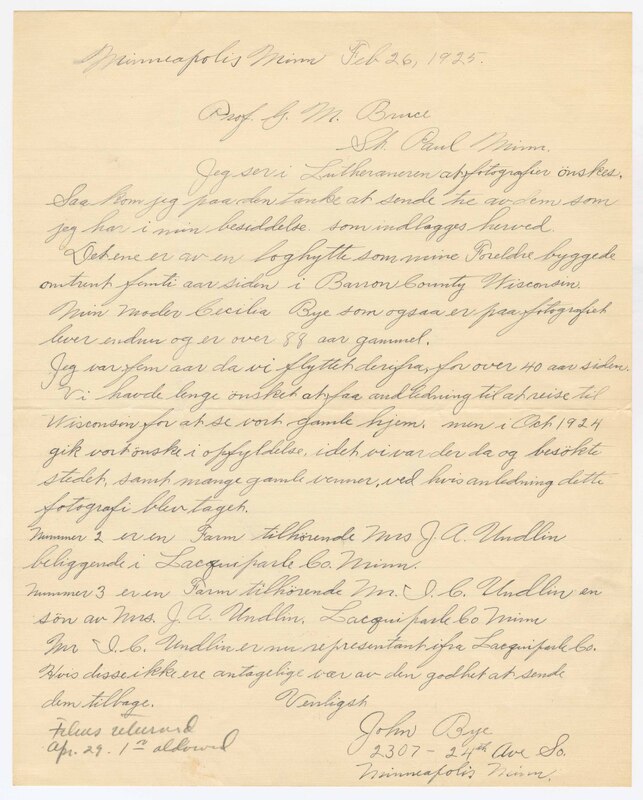 Minneapolis Minn Feb 26, 1925.
Prof. G. M. Bruce
St. Paul Minn.
Jeg ser i Lutheraneren at fotografier önskes.
Saa kom jeg paa den tanke at sende tre av dem som
jeg har i min besiddelse. som indlagges herved.
Det ene er av en loghytte som mine Foreldre byggede
omtrent femti aar siden i Barron County Wisconsin.
Min Moder Cecilia Bye som ogsaa er paa fotografiet
lever endnu og er over 88 aar gammel.
Jeg var fem aar da vi flyttet derfra, for over 40 aar siden.
Vi havde lenge önsket at faa andledning til at reise til
Wisconsin for at se vort gamle hjem. men i Oct 1924
gik vort önske i opfyldelse. idet vi var der da og besökte
stedet, samt mange gamle venner, ved hvis anledning dette
fotografi blev taget.
Nummer 2 er en Farm tilhörende Mrs J. A. Undlin
beliggende i Lacquiparle Co. Minn.
Nummer 3 er en Farm tilhörende Mr. I. C. Undlin en
sön av Mrs. J. A. Undlin. Lacquiparle Co Minn
Mr I. C. Undlin er nu representant ifra Lacquiparle Co.
Hvis disse ikke ere antagelige vær av den godhet at sende
dem tilbage. Venligst
John Bye
2307 - 24th Ave So.
Minneapolis Minn.
returned
Apr. 29. 1